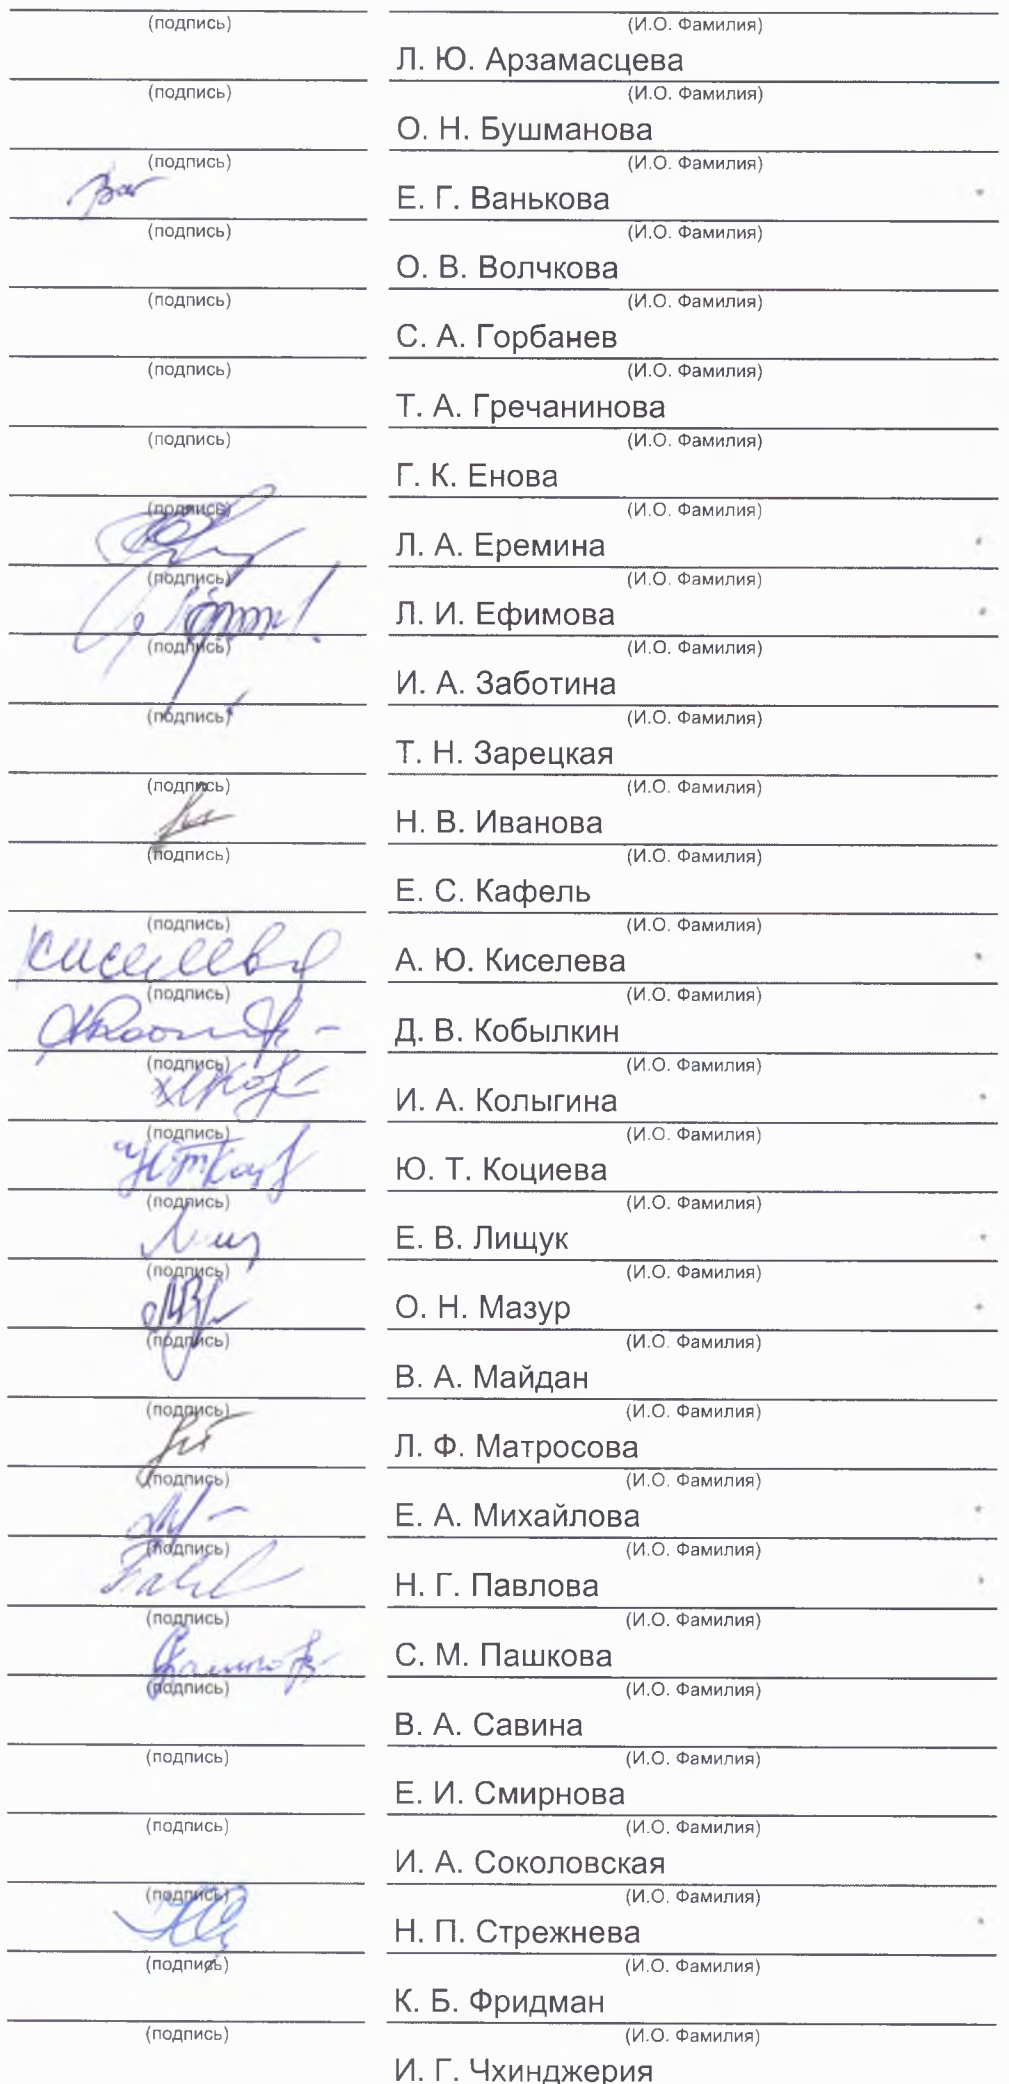 (подпись) (И.О. Фамилия)
Л. Ю. Арзамасцева
(подпись) (И.О. Фамилия)
О. Н. Бушманова
(подпись) (И.О. Фамилия)
Е. Г. Ванькова
(подпись) (И.О. Фамилия)
О. В. Волчкова
(подпись) (И.О. Фамилия)
С. А. Горбанев
(подпись) (И.О. Фамилия)
Т. А. Гречанинова
(подпись) (И.О. Фамилия)
Г. К. Енова
(подпись) (И.О. Фамилия)
Л. А. Еремина
(подпись) (И.О. Фамилия)
Л. И. Ефимова
(подпись) (И.О. Фамилия)
И. А. Заботина
(подпись) (И.О. Фамилия)
Т. Н. Зарецкая
(подпись) (И.О. Фамилия)
Н. В. Иванова
(подпись) (И.О. Фамилия)
Е. С. Кафель
(подпись) (И.О. Фамилия)
Киселева А. Ю. Киселева
(подпись) (И.О. Фамилия)
Д. В. Кобылкин
(подпись) (И.О. Фамилия)
И. А. Колыгина
(подпись) (И.О. Фамилия)
Ю. Т. Коциева
(подпись) (И.О. Фамилия)
Е. В. Лищук
(подпись) (И.О. Фамилия)
О. Н. Мазур
(подпись) (И.О. Фамилия)
В. А. Майдан
(подпись) (И.О. Фамилия)
Л. Ф. Матросова
(подпись) (И.О. Фамилия)
Е. А. Михайлова
(подпись) (И.О. Фамилия)
Н. Г. Павлова
(подпись) (И.О. Фамилия)
С. М. Пашкова
(подпись) (И.О. Фамилия)
В. А. Савина
(подпись) (И.О. Фамилия)
Е. И. Смирнова
(подпись) (И.О. Фамилия)
И. А. Соколовская
(подпись) (И.О. Фамилия)
Н. П. Стрежнева
(подпись) (И.О. Фамилия)
К. Б. Фридман
(подпись) (И.О. Фамилия)
И. Г. Чхинджерия